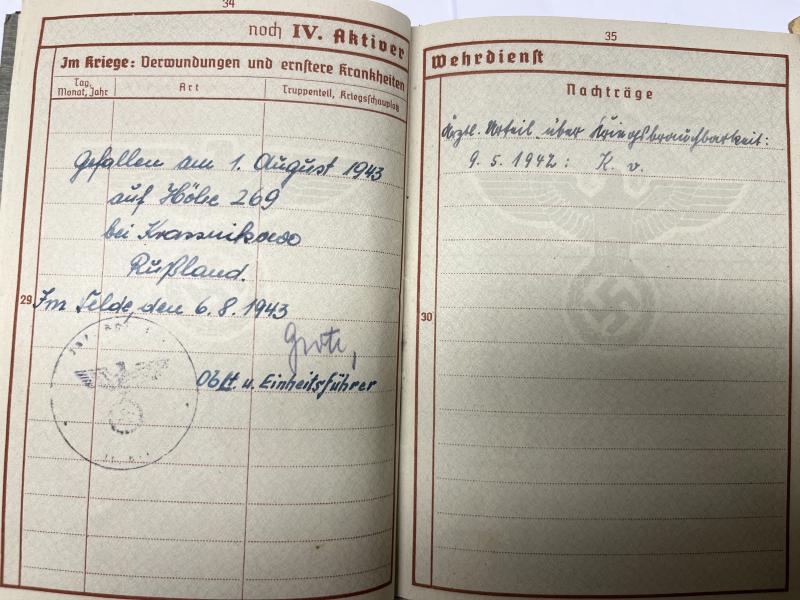 34
noch IV. Aktiver
Im Kriege: Verwundungen und ernstere Krankheiten
Tag, Monat, Jahr
Art
Truppenteil, Kriegsschauplatz
Gefallen am 1. August 1943
auf Höhe 269
bei Krassnikowo
Rußland.
29
Im Felde, den 6.8.1943
Grote,
Oblt. u. Einheitsführer
35
Wehrdienst
Nachträge
Ärztl. Urteil über Kriegsbrauchbarkeit:
9.5.1942: K. v.
30